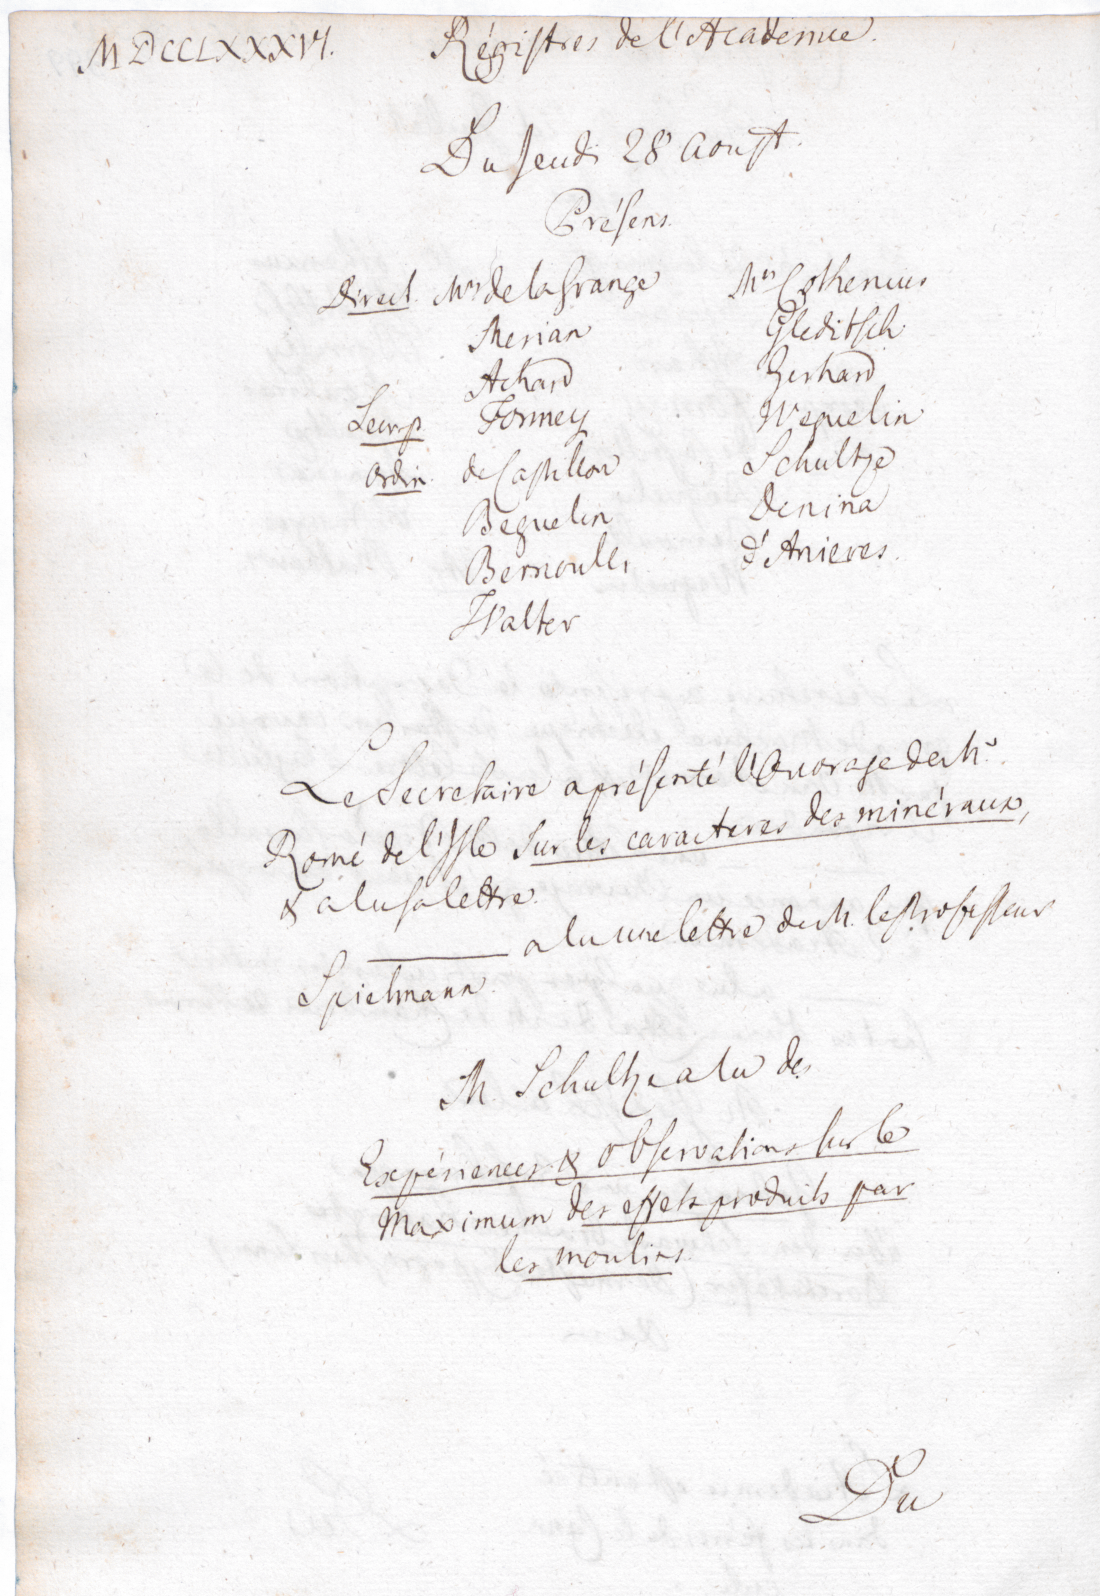 MDCCLXXXVI. Régistres de l'Academie.
Du Jeudi 28 Aoust.
Présens.
Direct. Mrs de la Grange
Merian
Achard
Formey
Ordin. de Castillon
Beguelin
Bernoulli
Walter
Mrs Cothenius
Gleditsch
Gerhard
Weguelin
Schultze
Denina
d'Anieres.
Le Secretaire a présenté l'Ouvrage de Mr.
Romé de l'Isle Sur les caracteres des minéraux,
& a lu sa lettre.
——— a lu une lettre de M. le Professeur
Spielmann.
M. Schultz a lu des
Expériences & Observations sur le
Maximum des effets produits par
les moulins.
Du